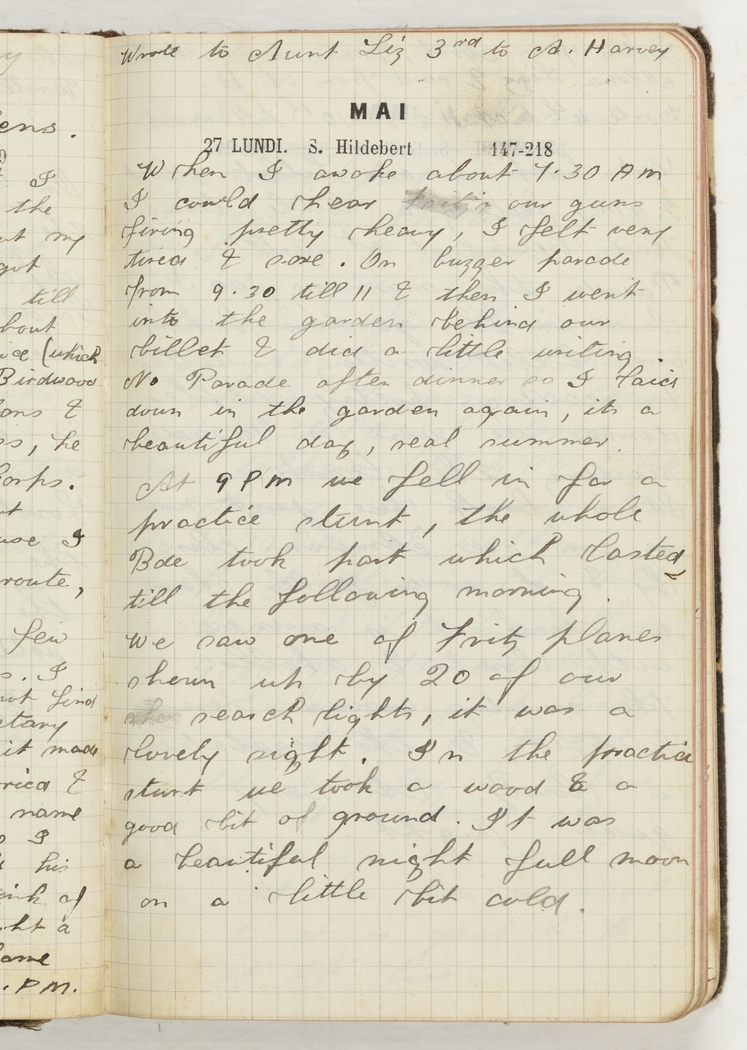 Wrote to Aunt Liz 3rd to A. Harvey
MAI
27 LUNDI. S. Hildebert 147-218
When I awoke about 7.30 AM
I could hear our guns
firing pretty heavy, I felt very
tired & sore. On buzzer parade
from 9.30 till 11 & then I went
into the garden behind our
billet & did a little writing.
No Parade after dinner so I laid
down in the garden again, its a
beautiful day, real summer.
At 9 PM we fell in for a
practice stunt, the whole
Bde took part which lasted
till the following morning.
We saw one of Fritz planes
shewn up by 20 of our
search lights, it was a
lovely sight. In the practice
stunt we took a wood & a
good bit of ground. It was
a beautiful night full moon
on a little bit cold.
ens.
I
the
my
got
till
about
(which
Birdwood
&
he
Corps.
I
route,
few
I
not find
it made
&
name
I
his
of
a
P.M.